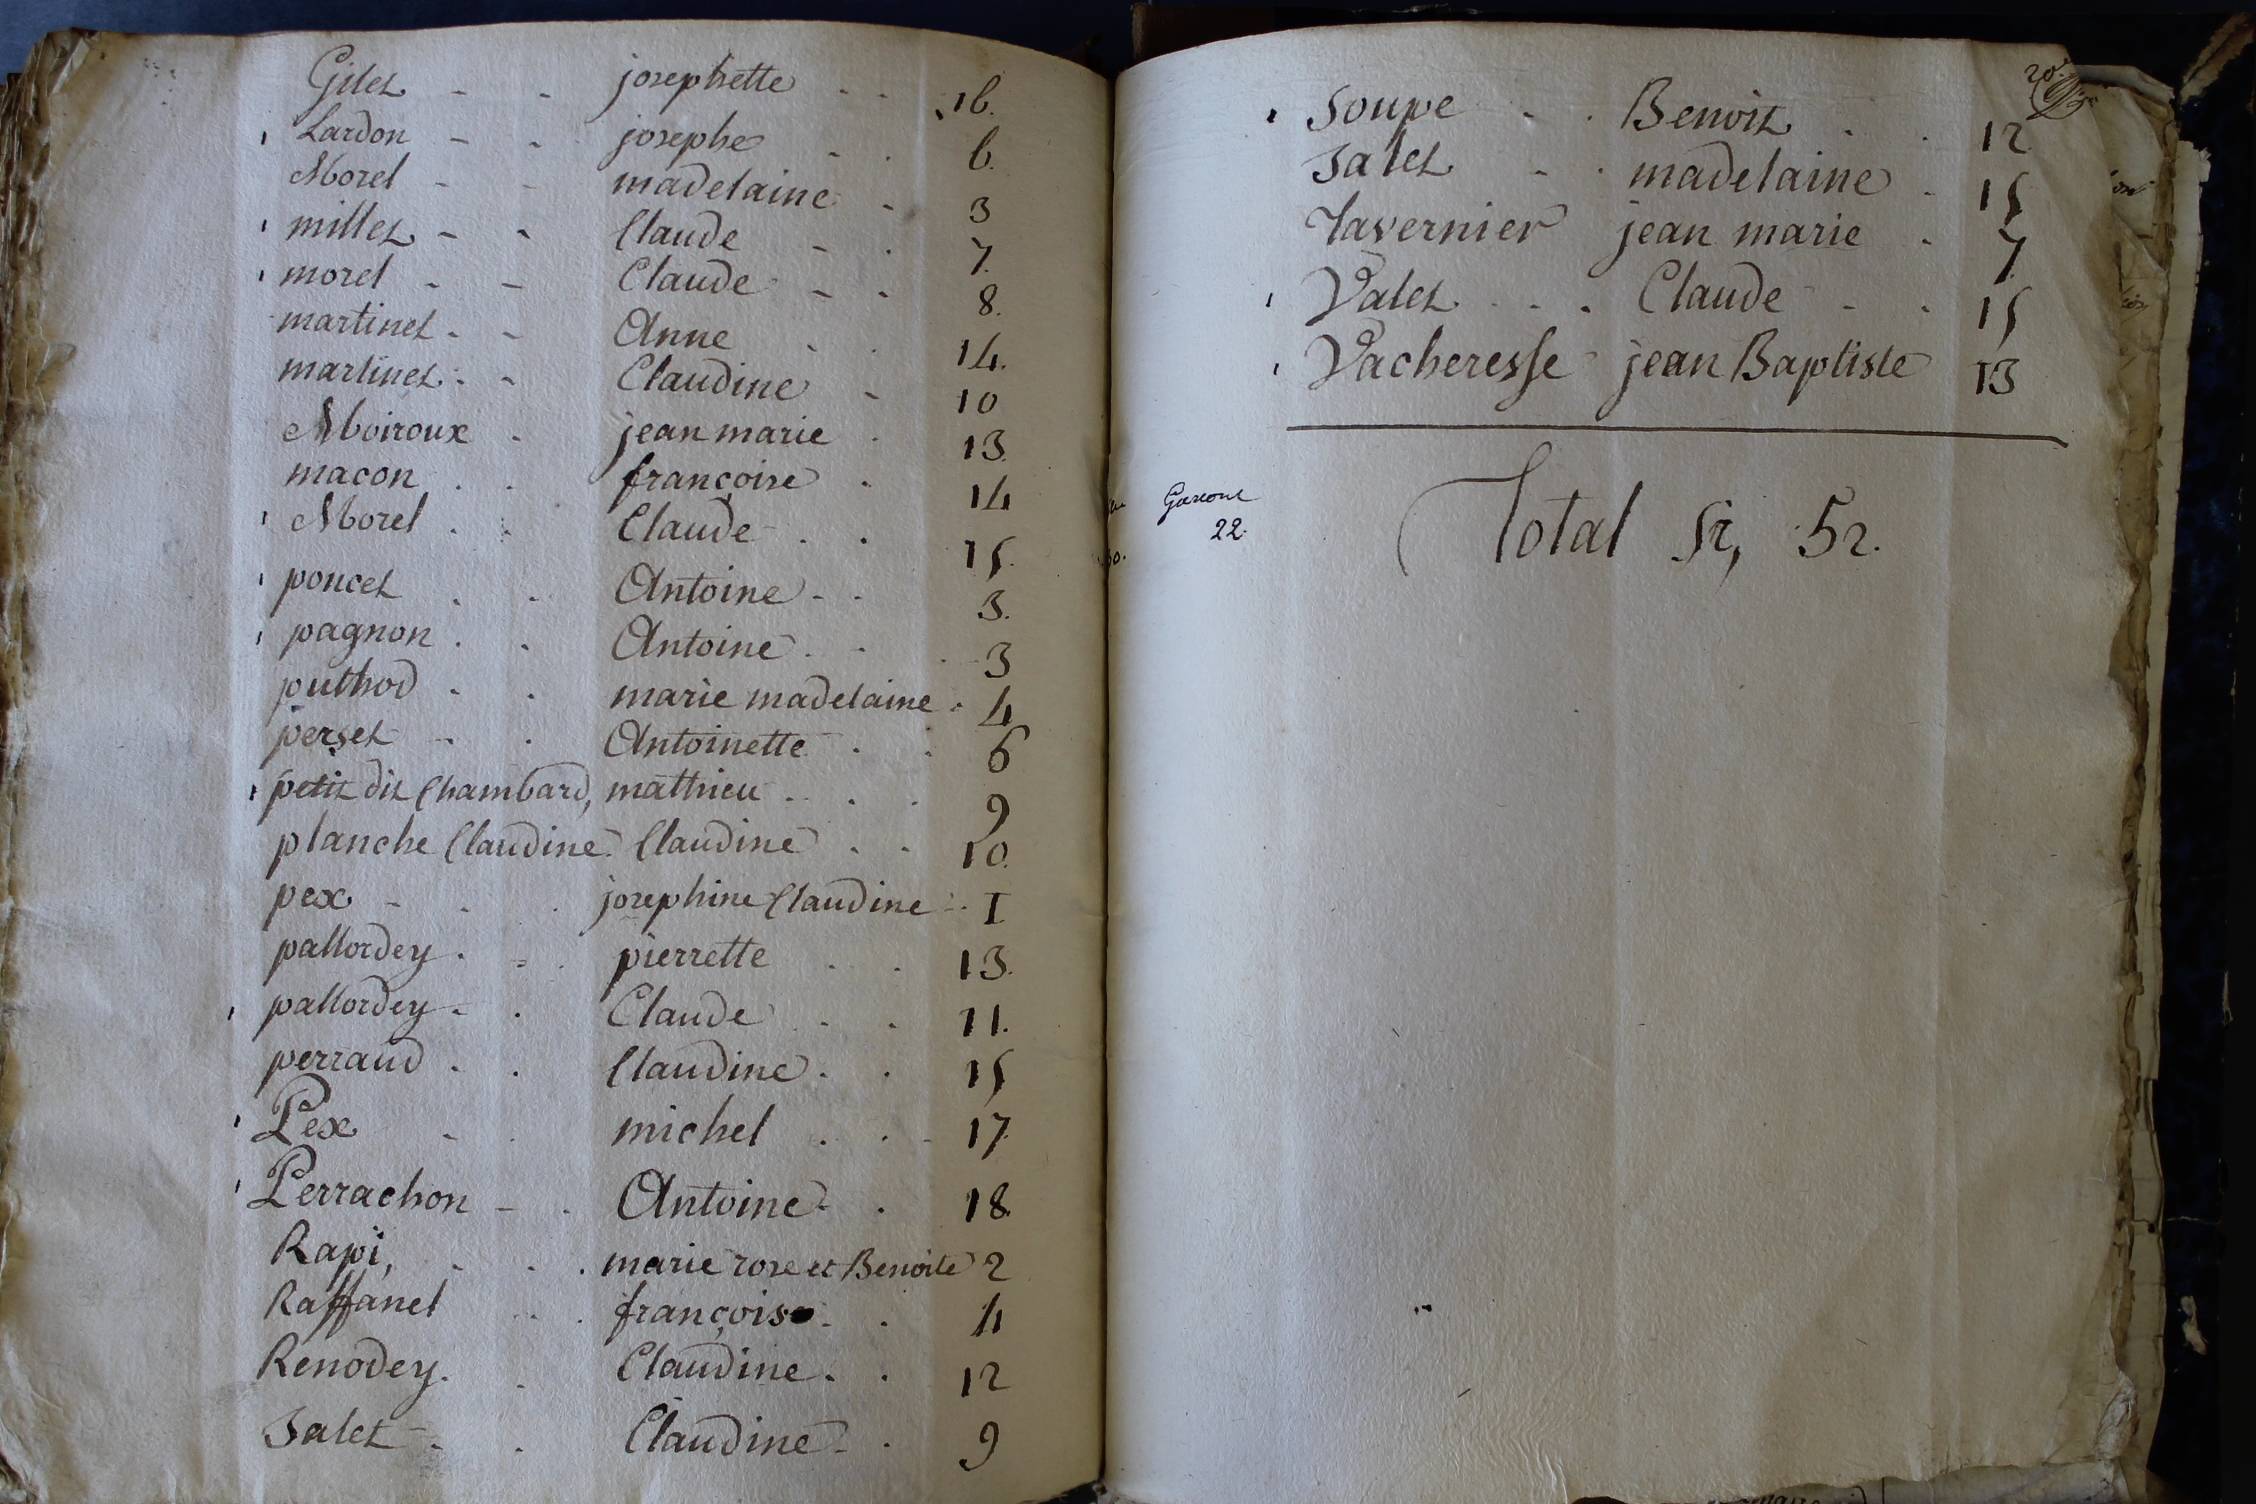 Gilet - - josephette - - 16.
Lardon - - josephe - . 6.
Morel - - madelaine - 3
millet - - Claude - . 7.
morel - - Claude - - 8.
martinet - - Anne . . 14.
martinet . - Claudine - 10
Moiroux . jean marie . 13.
macon . . françoise . 14
Morel . . Claude . . 15.
poncet . . Antoine - . 3.
pagnon . . Antoine . . 3
puthod . . marie madelaine . 4
perset - . Antoinette . . 6
petit dit Chambard, mathieu . . . 9
planche Claudine. Claudine . . 10.
pex - . . josephine Claudine . I
pallordey . - . pierrette . . 13.
pallordey - . Claude . . 11.
perraud . . Claudine . . 15
Pex - . michel . . - 17
Perrachon - . Antoine . 18.
Rapi, . . . marie rose et Benoite 2
Raffanel . . françois . 4
Renodey . . Claudine . . 12
Jalet - . Claudine - . 9
20.
Soupe . . Benoit . . 12
Jalet - . madelaine . 15
Tavernier jean marie . 7.
Valet . . . Claude - . 15
Vacheresse jean Baptiste 13
Garcons
22.
Total 52, 52.